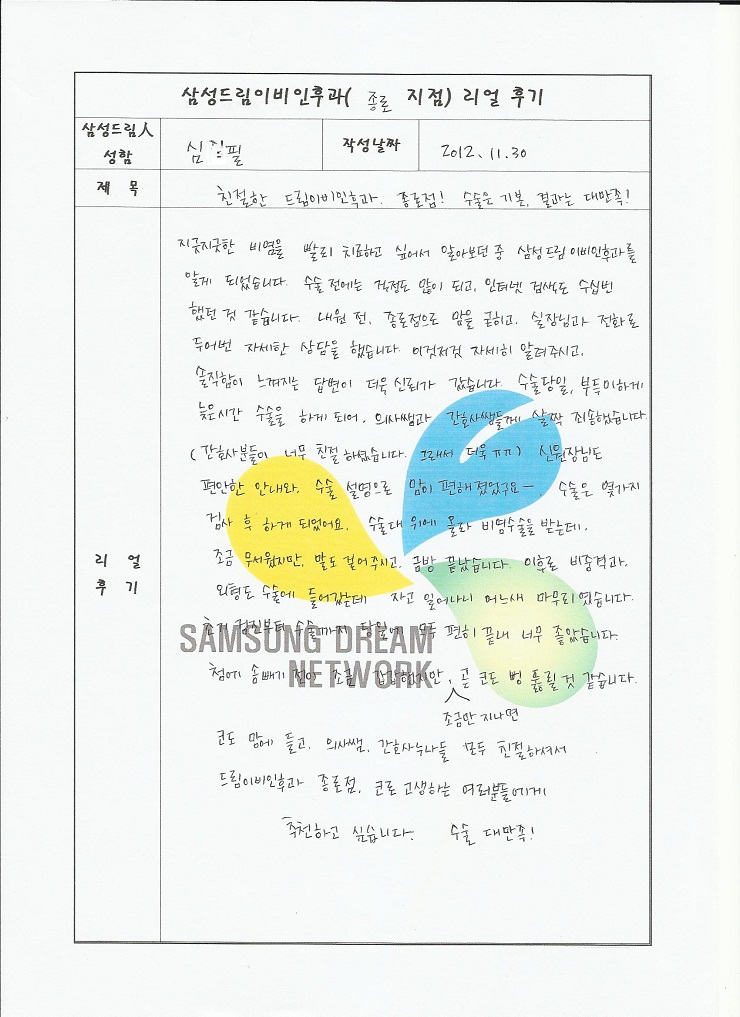 삼성드림이비인후과( 종로 지점) 리얼 후기
삼성드림人 성함
심 필
작성날짜
2012. 11. 30
제 목
친절한 드림이비인후과. 종로점! 수술은 기본, 결과는 대만족!
리 얼 후 기
지긋지긋한 비염을 빨리 치료하고 싶어서 알아보던 중 삼성드림이비인후과를
알게 되었습니다. 수술 전에는 걱정도 많이 되고, 인터넷 검색도 수십번
했던 것 같습니다. 내원 전, 종로점으로 맘을 굳히고, 실장님과 전화로
두어번 자세한 상담을 했습니다. 이것저것 자세히 알려주시고,
솔직함이 느껴지는 답변이 더욱 신뢰가 갔습니다. 수술당일, 부득이하게
늦은시간 수술을 하게 되어, 의사쌤과 간호사쌤들께 살짝 죄송했습니다
(간호사분들이 너무 친절하셨습니다. 그래서 더욱 ㅠㅠ) 신원장님도
편안한 안내와, 수술 설명으로 맘이 편해졌었구요~. 수술은 몇가지
검사 후 하게 되었어요. 수술대 위에 올라 비염수술을 받는데,
조금 무서웠지만, 말도 걸어주시고, 금방 끝났습니다. 이후로 비중격과,
외형도 수술에 들어갔는데 자고 일어나니 어느새 마무리였습니다.
초기 검진부터 수술까지 당일에 모두 편히 끝내 너무 좋았습니다.
SAMSUNG DREAM
NETWORK
첨에 솜빼기 전이 조금 갑갑했지만, 조금만 지나면 곧 코도 뻥 뚫릴 것 같습니다.
코도 맘에 들고, 의사쌤, 간호사누나들 모두 친절하셔서
드림이비인후과 종로점, 코로 고생하는 여러분들에게
추천하고 싶습니다. 수술 대만족!